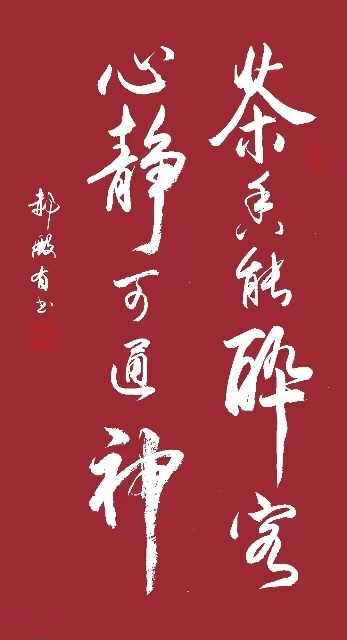 茶香能醉客
心静可通神
郝殿有书